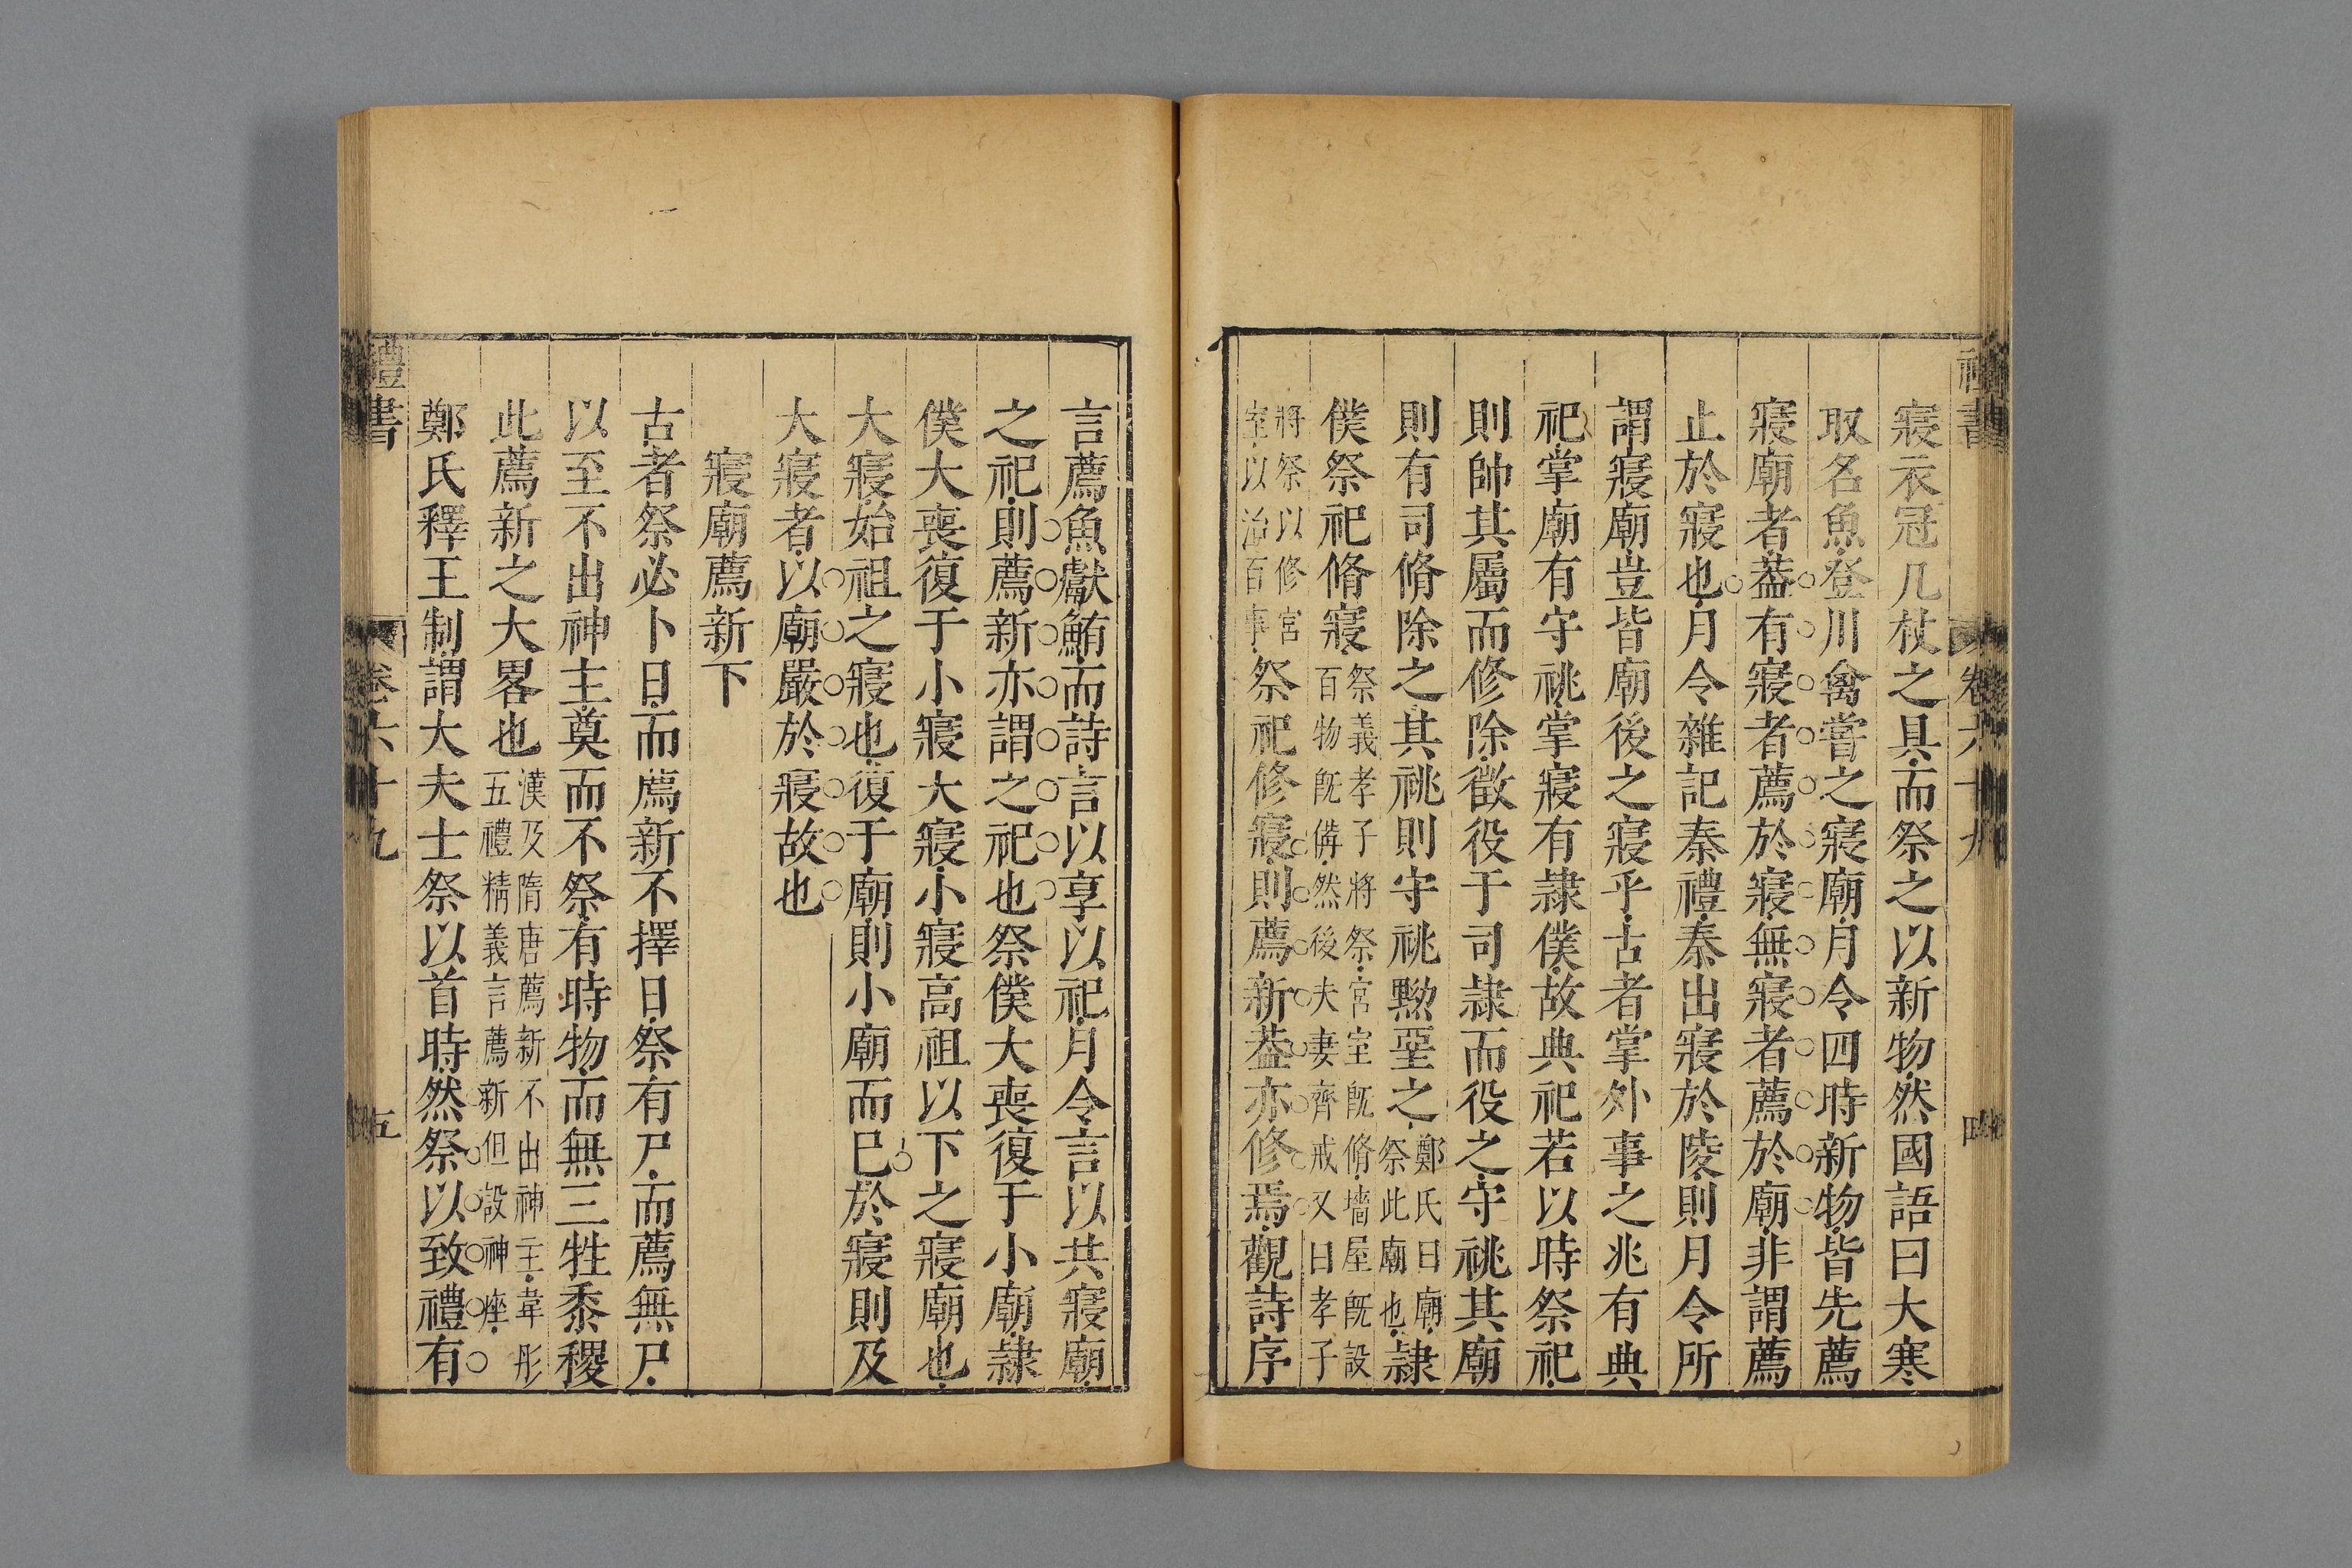 禮書
卷六十九
四
寢衣冠几杖之具而祭之以新物然國語曰大寒
取名魚登川禽嘗之寢廟月令四時新物皆先薦
寢廟者葢有寢者薦於寢無寢者薦於廟非謂薦
止於寢也月令雜記秦禮秦出寢於陵則月令所
謂寢廟豈皆廟後之寢乎古者掌外事之兆有典
祀掌廟有守祧掌寢有隷僕故典祀若以時祭祀
則帥其屬而修除徵役于司隷而役之守祧其廟
則有司脩除之其祧則守祧黝堊之鄭氏曰廟祭此廟也隷
僕祭祀脩寢祭義孝子將祭宮室旣脩墻屋旣設百物旣備然後夫妻齊戒又曰孝子
將祭以修宮室以治百事祭祀修寢則薦新葢亦修焉觀詩序
言薦魚獻鮪而詩言以享以祀月令言以共寢廟
之祀則薦新亦謂之祀也祭僕大喪復于小廟隷
僕大喪復于小寢大寢小寢高祖以下之寢廟也
大寢始祖之寢也復于廟則小廟而已於寢則及
大寢者以廟嚴於寢故也
寢廟薦新下
古者祭必卜日而薦新不擇日祭有尸而薦無尸
以至不出神主奠而不祭有時物而無三牲黍稷
此薦新之大畧也漢及隋唐薦新不出神主韋彤五禮精義言薦新但設神座
鄭氏釋王制謂大夫士祭以首時然祭以致禮有
禮書
卷六十九
五